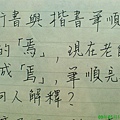 行書與楷書筆順
的「焉」，現在老
成「焉」，筆順是
何人解釋？